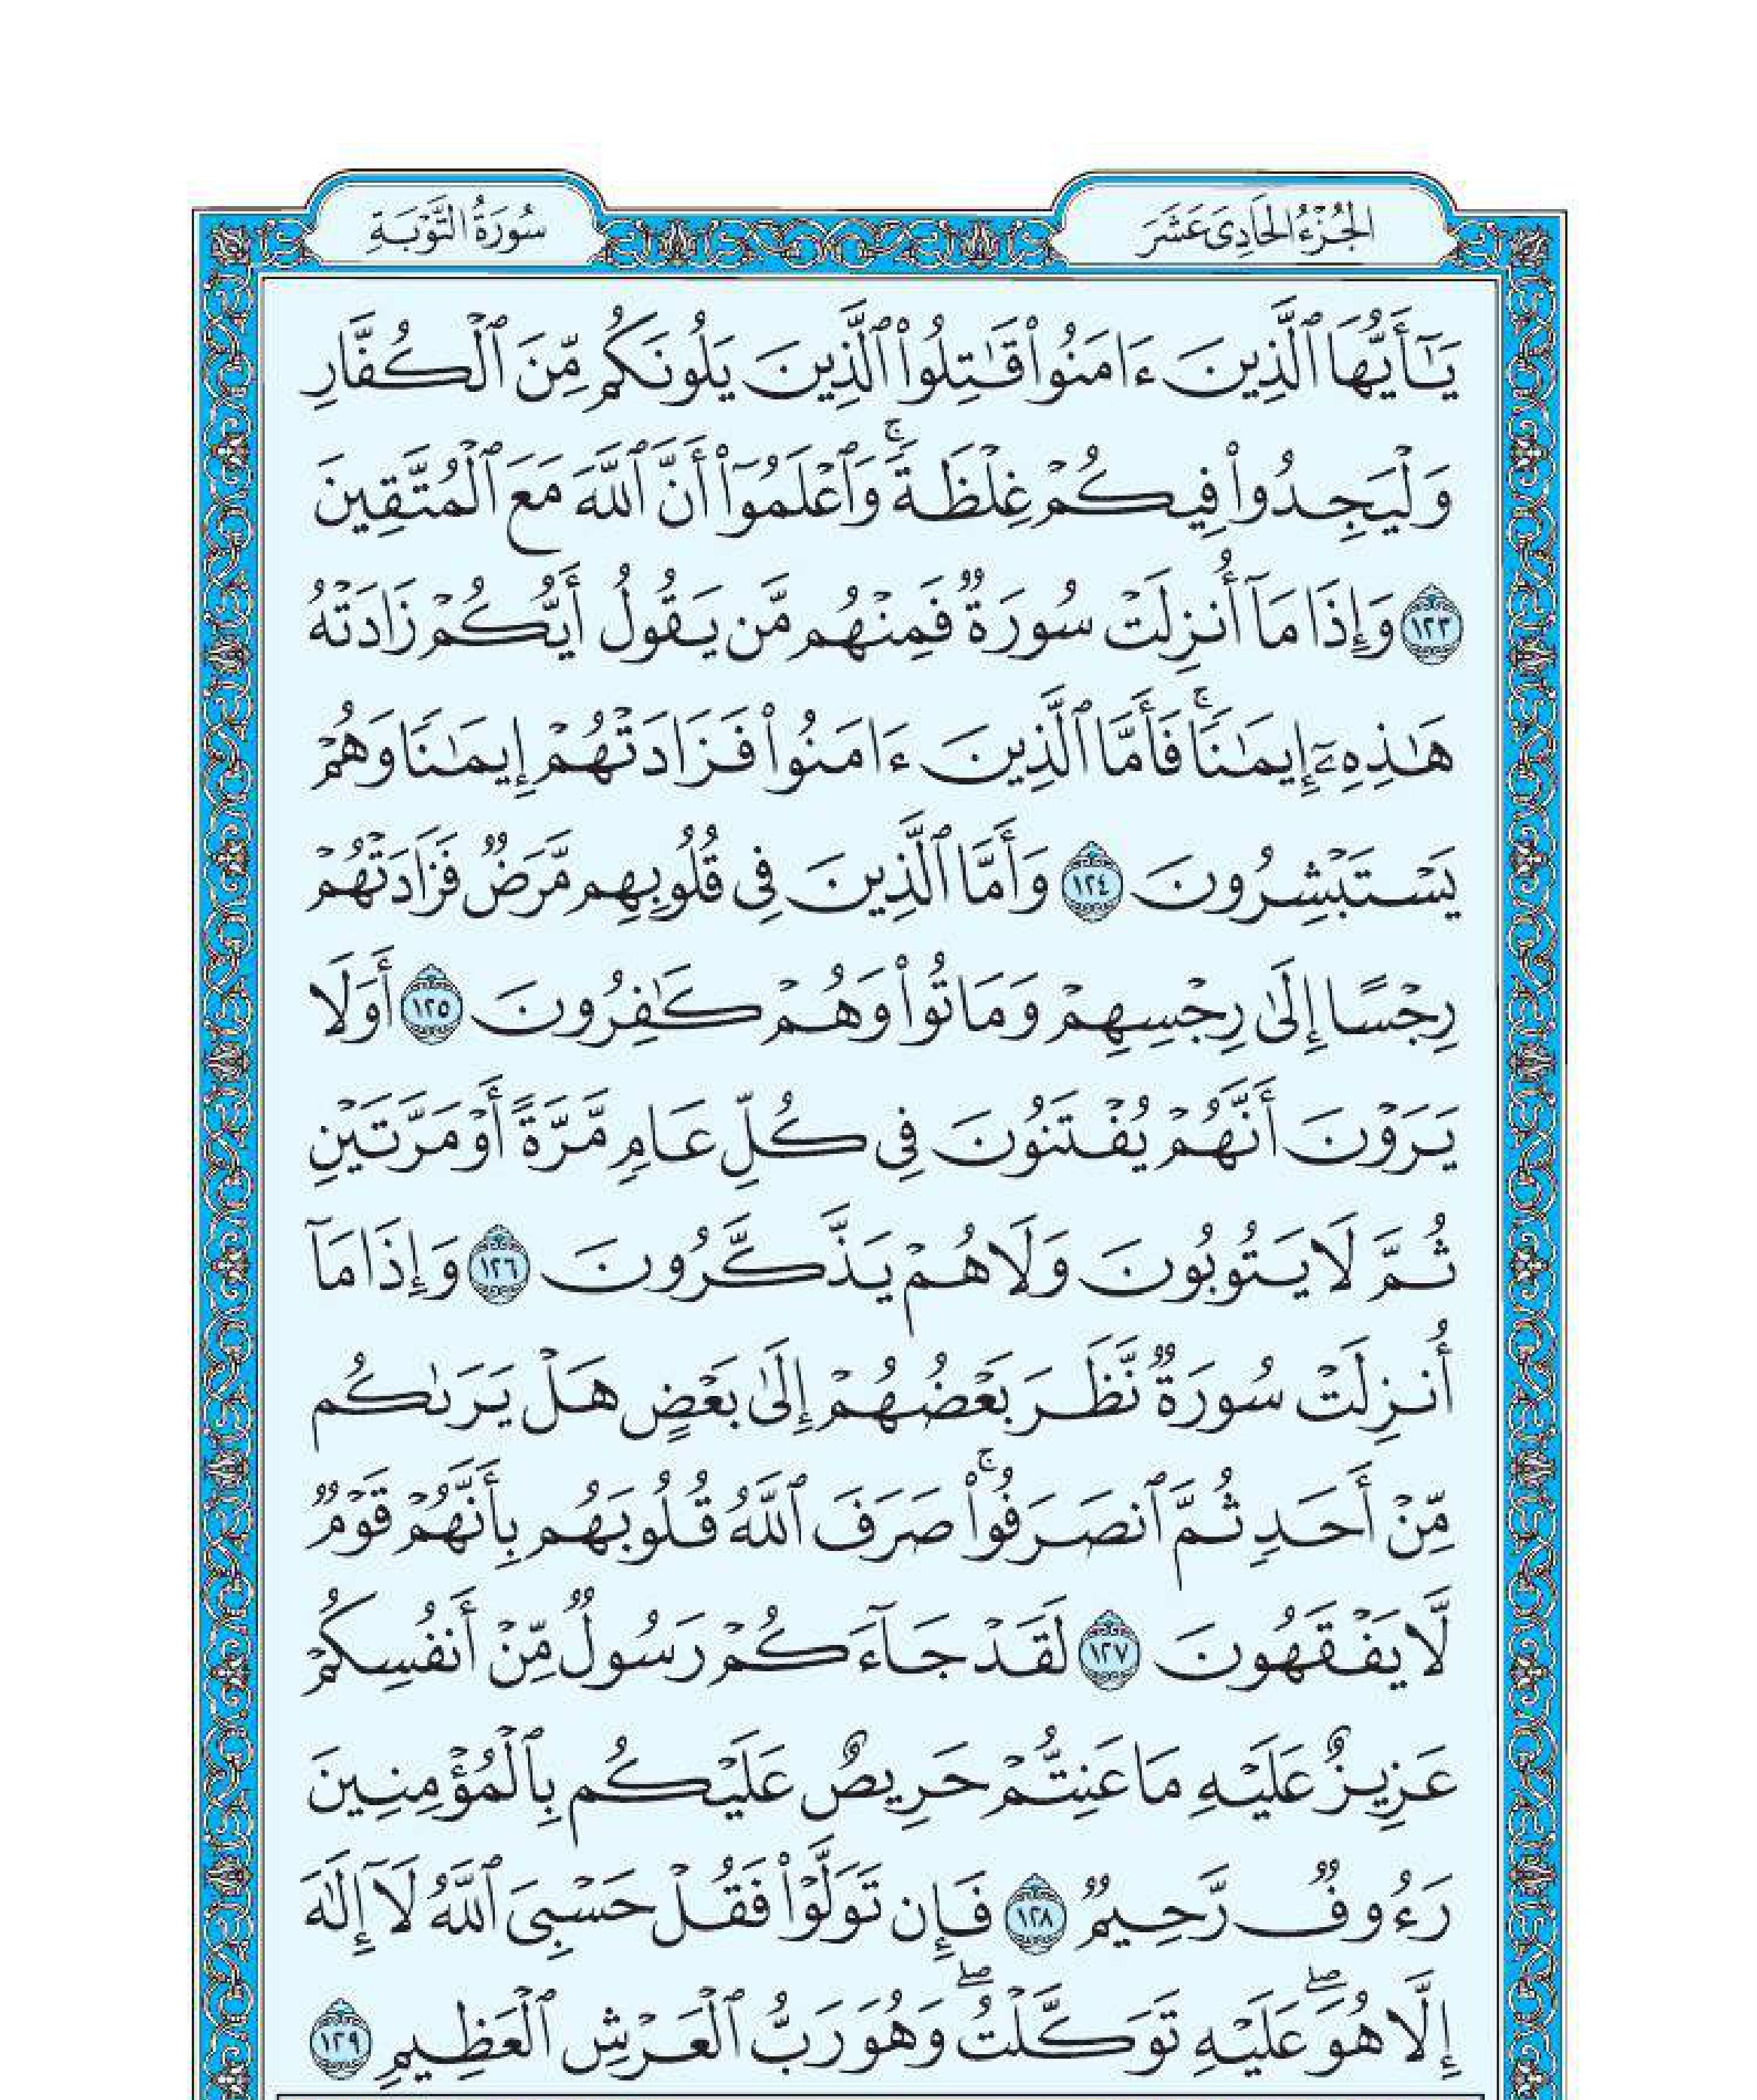 الجُزْءُ الحَادِى عَشَرَ
سُورَةُ التَّوْبَةِ
يَٰٓأَيُّهَا ٱلَّذِينَ ءَامَنُوا۟ قَٰتِلُوا۟ ٱلَّذِينَ يَلُونَكُم مِّنَ ٱلْكُفَّارِ
وَلْيَجِدُوا۟ فِيكُمْ غِلْظَةً ۚ وَٱعْلَمُوٓا۟ أَنَّ ٱللَّهَ مَعَ ٱلْمُتَّقِينَ
١٢٣ وَإِذَا مَآ أُنزِلَتْ سُورَةٌ فَمِنْهُم مَّن يَقُولُ أَيُّكُمْ زَادَتْهُ
هَٰذِهِۦٓ إِيمَٰنًا ۚ فَأَمَّا ٱلَّذِينَ ءَامَنُوا۟ فَزَادَتْهُمْ إِيمَٰنًا وَهُمْ
يَسْتَبْشِرُونَ ١٢٤ وَأَمَّا ٱلَّذِينَ فِى قُلُوبِهِم مَّرَضٌ فَزَادَتْهُمْ
رِجْسًا إِلَىٰ رِجْسِهِمْ وَمَاتُوا۟ وَهُمْ كَٰفِرُونَ ١٢٥ أَوَلَا
يَرَوْنَ أَنَّهُمْ يُفْتَنُونَ فِى كُلِّ عَامٍ مَّرَّةً أَوْ مَرَّتَيْنِ
ثُمَّ لَا يَتُوبُونَ وَلَا هُمْ يَذَّكَّرُونَ ١٢٦ وَإِذَا مَآ
أُنزِلَتْ سُورَةٌ نَّظَرَ بَعْضُهُمْ إِلَىٰ بَعْضٍ هَلْ يَرَىٰكُم
مِّنْ أَحَدٍ ثُمَّ ٱنصَرَفُوا۟ ۚ صَرَفَ ٱللَّهُ قُلُوبَهُم بِأَنَّهُمْ قَوْمٌ
لَّا يَفْقَهُونَ ١٢٧ لَقَدْ جَآءَكُمْ رَسُولٌ مِّنْ أَنفُسِكُمْ
عَزِيزٌ عَلَيْهِ مَا عَنِتُّمْ حَرِيصٌ عَلَيْكُم بِٱلْمُؤْمِنِينَ
رَءُوفٌ رَّحِيمٌ ١٢٨ فَإِن تَوَلَّوْا۟ فَقُلْ حَسْبِىَ ٱللَّهُ لَآ إِلَٰهَ
إِلَّا هُوَ ۖ عَلَيْهِ تَوَكَّلْتُ ۖ وَهُوَ رَبُّ ٱلْعَرْشِ ٱلْعَظِيمِ ١٢٩